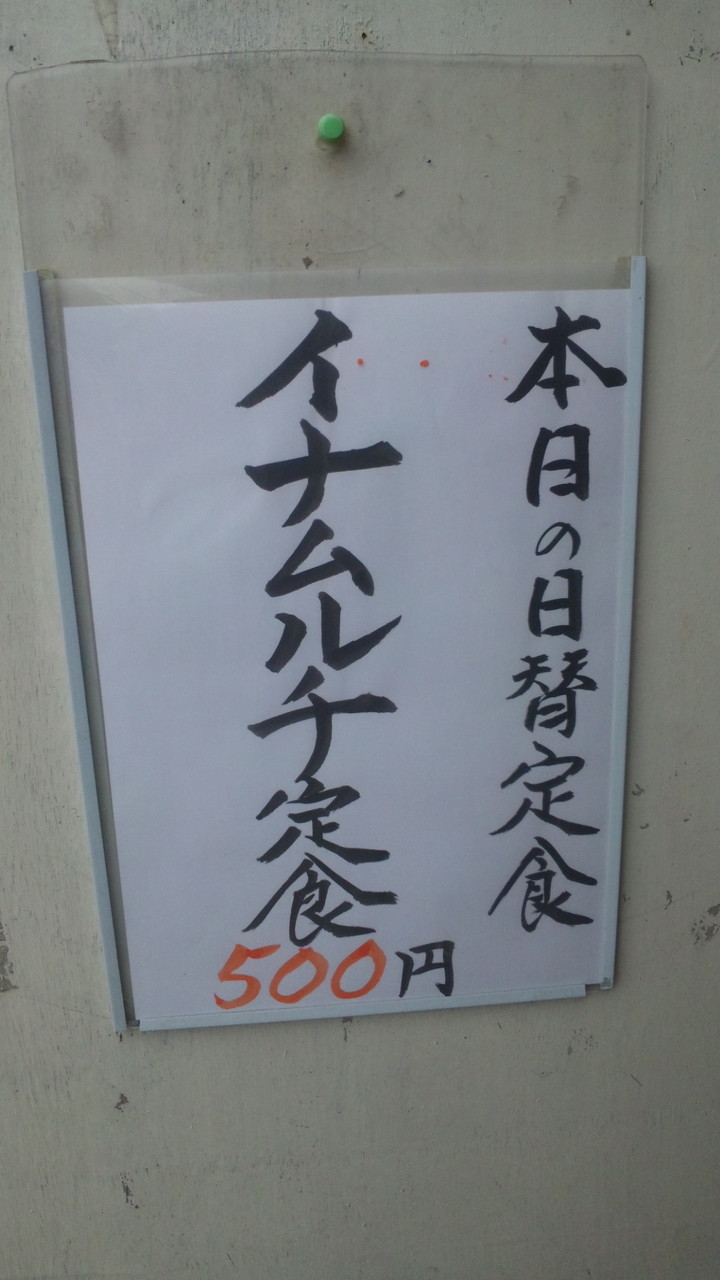 本日の日替定食
イナムルチ定食
500円